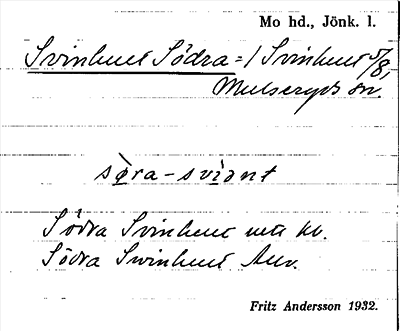 Mo hd., Jönk. l.
Svinhult Södra = / Svinhult 5/8,
Mulseryds sn.
søra-svi̯ant
Södra Svinhult
Södra Svinhult
Fritz Andersson 1932.